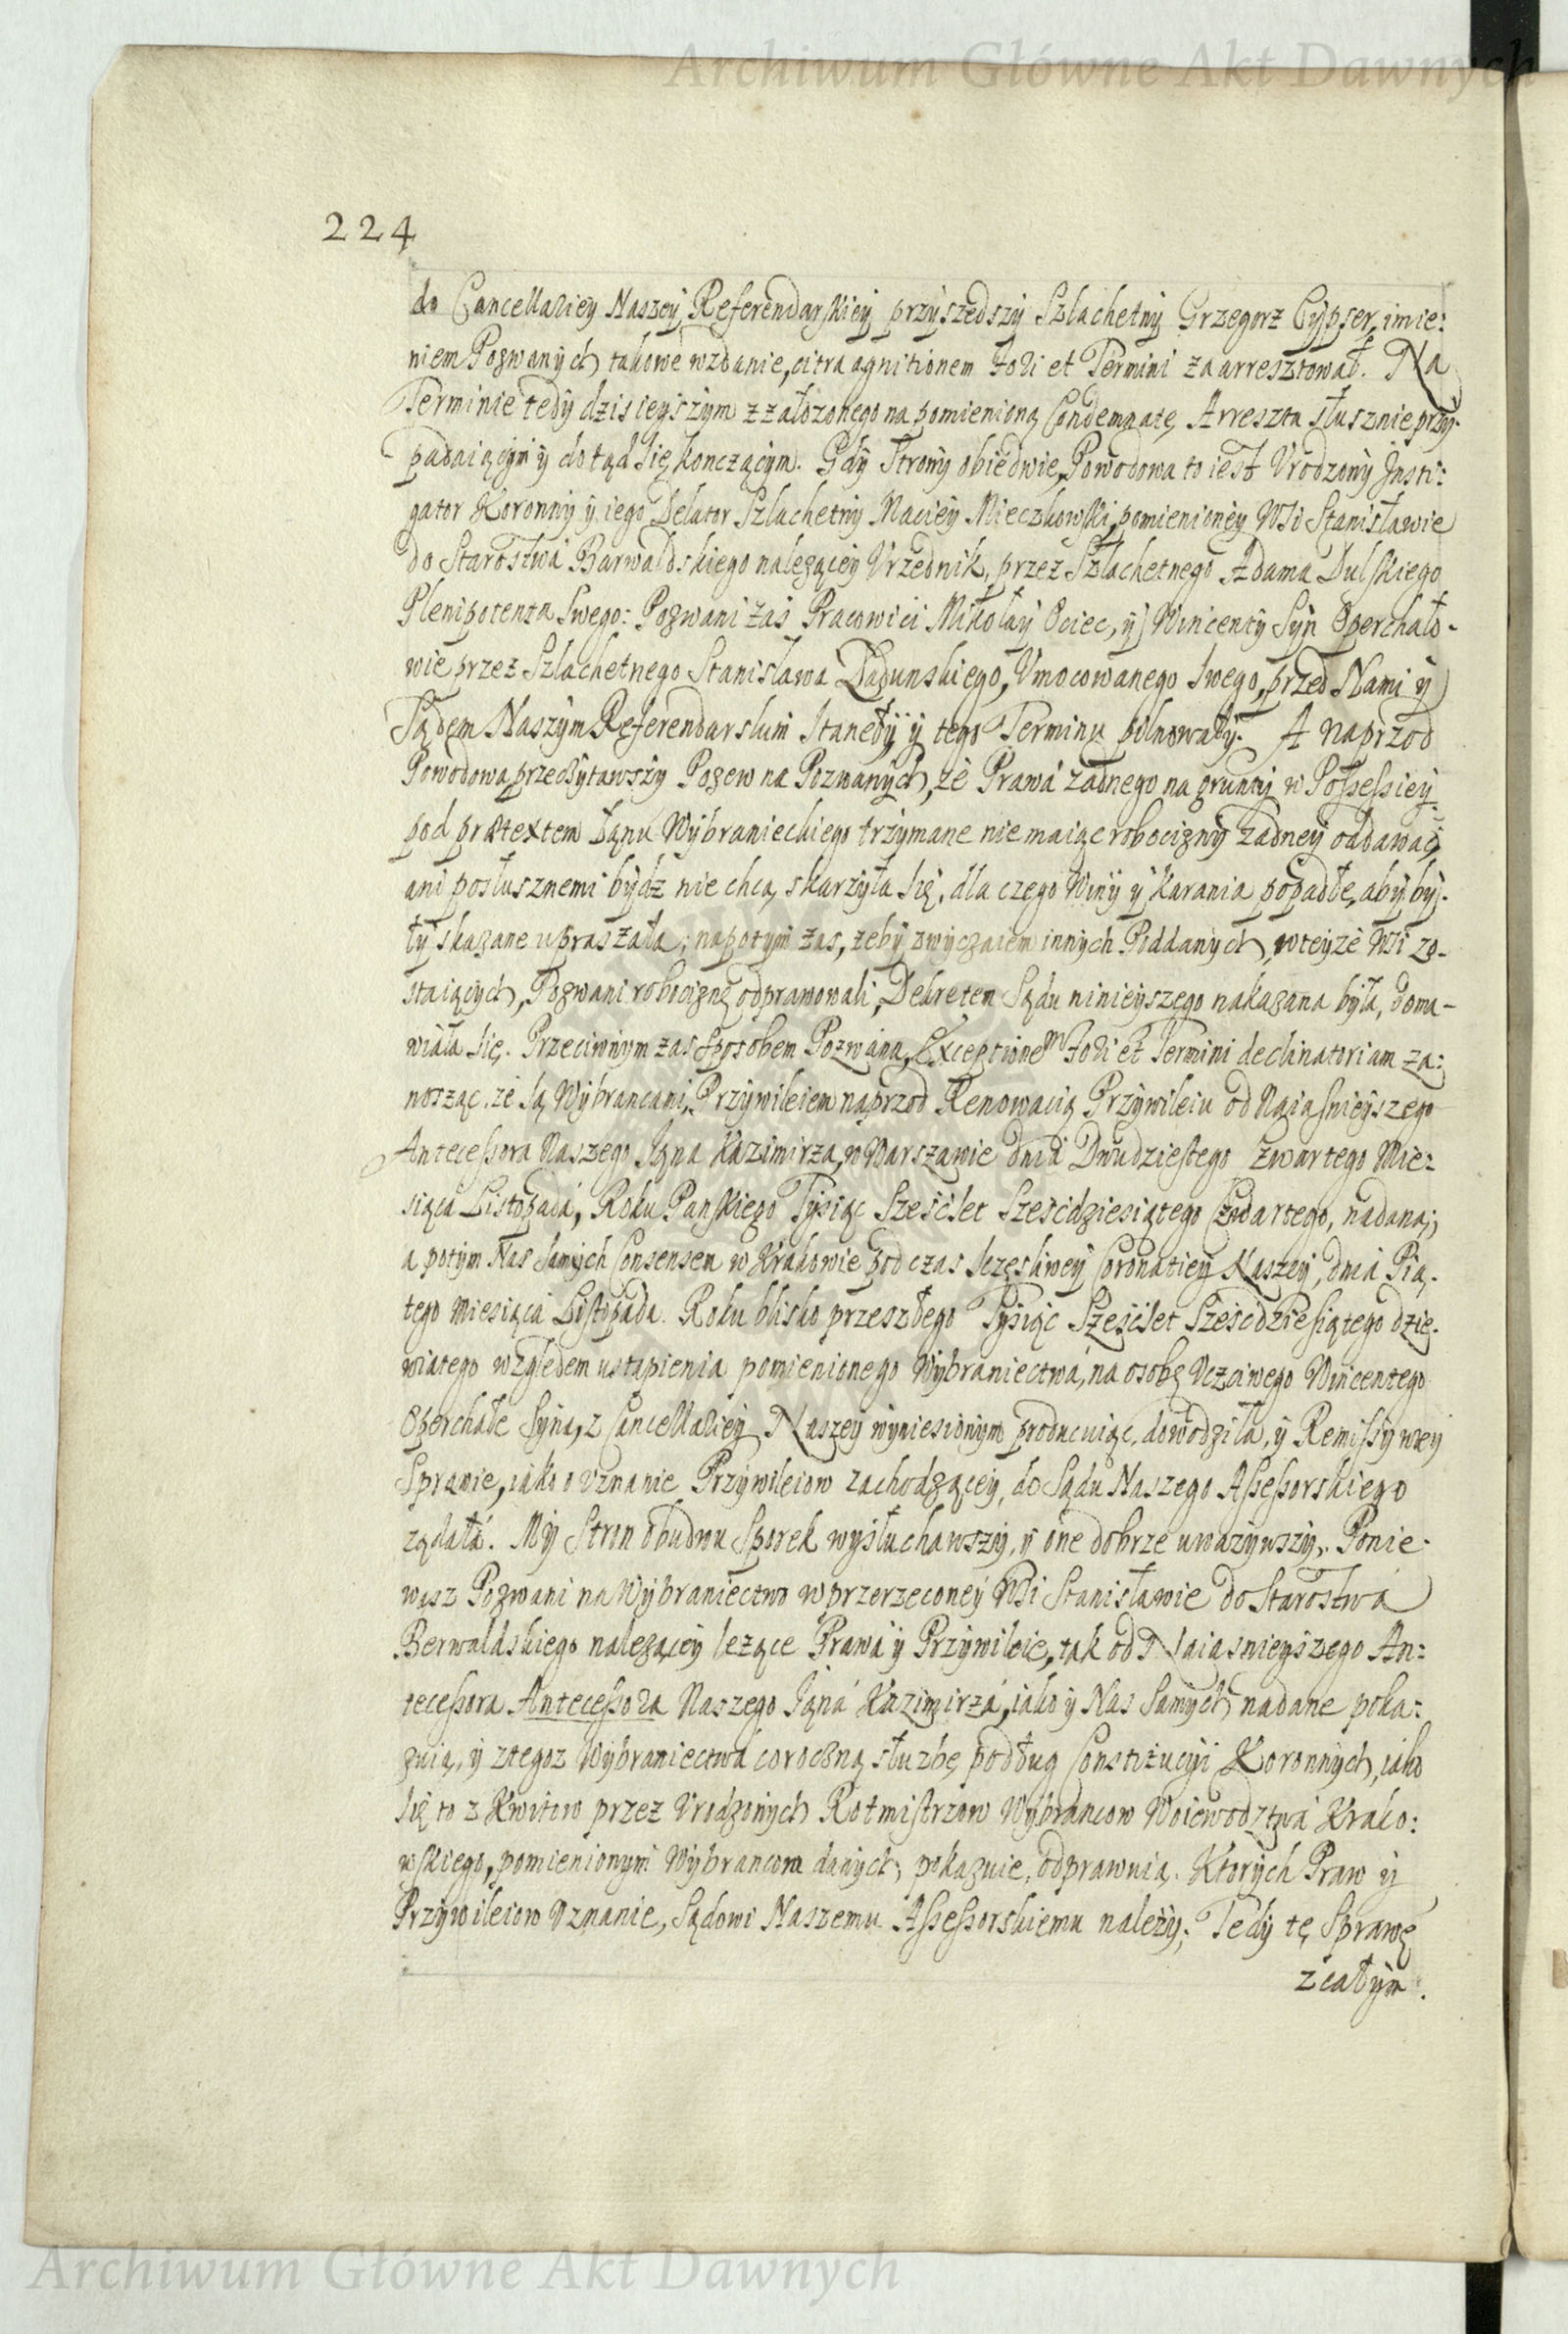 Archiwum Główne Akt Dawnych
224
do Cancellariey Naszey Referendarskiey przyszedszy Szlachetny Grzegorz Cypser, imie:
niem Pozwanych takowe wzdanie, citra agnitionem Fori et Termini zaarresztował. Na
Terminie tedy dzisieyszym z założonego na pomienioną Condemnatę Arresztu słusznie przy-
padaiącym y dotąd się konczącym. Gdy Strony obiedwie, Powodowa to iest Vrodzony Insti:
gator Koronny y iego Delator Szlachetny Maciey Mieczkowski, pomienioney Wsi Stanisławie
do Starostwa Barwaldskiego należącey Vrzednik, przez Szlachetnego Adama Dulskiego
Plenipotenta Swego: Pozwani zaś Pracowici Mikołay Ociec, y Wincenty Syn Operchało-
wie przez Szlachetnego Stanisława Dadunskiego, Vmocowanego swego, przed Nami y
Sądem Naszym Referendarskim Stanęły y tego Terminu pilnowały. A naprzod
Powodowa przeczytawszy Pozew na Pozwanych, że Prawá żadnego na grunty w Possessiey
pod prætextem Łanu Wybranieckiego trzymane nie maiąc robocizny żadney oddawać
ani posłusznemi bydź nie chcą, skarzyła się, dla czego Winy y Karania popadłe, aby by-
ły skazane upraszała; napotym zas, żeby zwyczaiem innych Poddanych, wteyże Wsi zo-
staiących, Pozwani robociznę odprawowali, Dekretem Sądu ninieyszego nakazana była, doma-
wiała się. Przeciwnym zas sposobem Pozwana, Exceptionem Fori et Termini declinatoriam za:
nosząc, że są Wybrancami, Przywileiem naprzod Renowacią Przywileiu od Naiasnieyszego
Antecessora Naszego Jana Kazimirza, w Warszawie dniá Dwudziestego Czwartego Mie:
siącá Listopadá, Roku Panskiego Tysiąc Sześćset Sześćdziesiątego Czwartego, nadaną;
a potym Nas Samych Consensem w Krakowie podczas szczęsliwey Coronatiey Naszey, dniá Pią-
tego Miesiącá Listopada. Roku blisko przeszłego Tysiąc Sześćset Sześćdziesiątego dzie-
wiątego względem ustąpienia pomienionego Wybraniectwá, na osobę Vczciwego Wincentego
Operchałe Syna, z Cancellariey Naszey wyniesionym producuiąc, dowodziła, y Remissy w tey
Sprawie, iako o Vznanie Przywileiow zachodzącey, do Sądu Naszego Assessorskiego
żądałá. My Stron obudwu Sporek wysłuchawszy, y one dobrze uważywszy. Ponie-
wasz Pozwani na Wybraniectwo w przerzeconey Wsi Stanisławie do Starostwá
Berwaldskiego należącey leżące Prawá y Przywileie, tak od Naiasnieyszego An:
tecessora Antecessora Naszego Janá Kazimirzá, iako y Nas Samych nadane poka:
zuią, y ztegoz Wybraniectwá coroczną służbę podług Constitucyi Koronnych, iako
się to z Kwitow przez Vrodzonych Rotmistrzow Wybrancow Woiewodztwá Krako:
wskiego, pomienionym Wybrancom danych, pokazuie, odprawuią. Ktorych Praw y
Przywileiow Vznanie, Sądowi Naszemu Assessorskiemu należy; Tedy tę Sprawę
z całym
Archiwum Główne Akt Dawnych